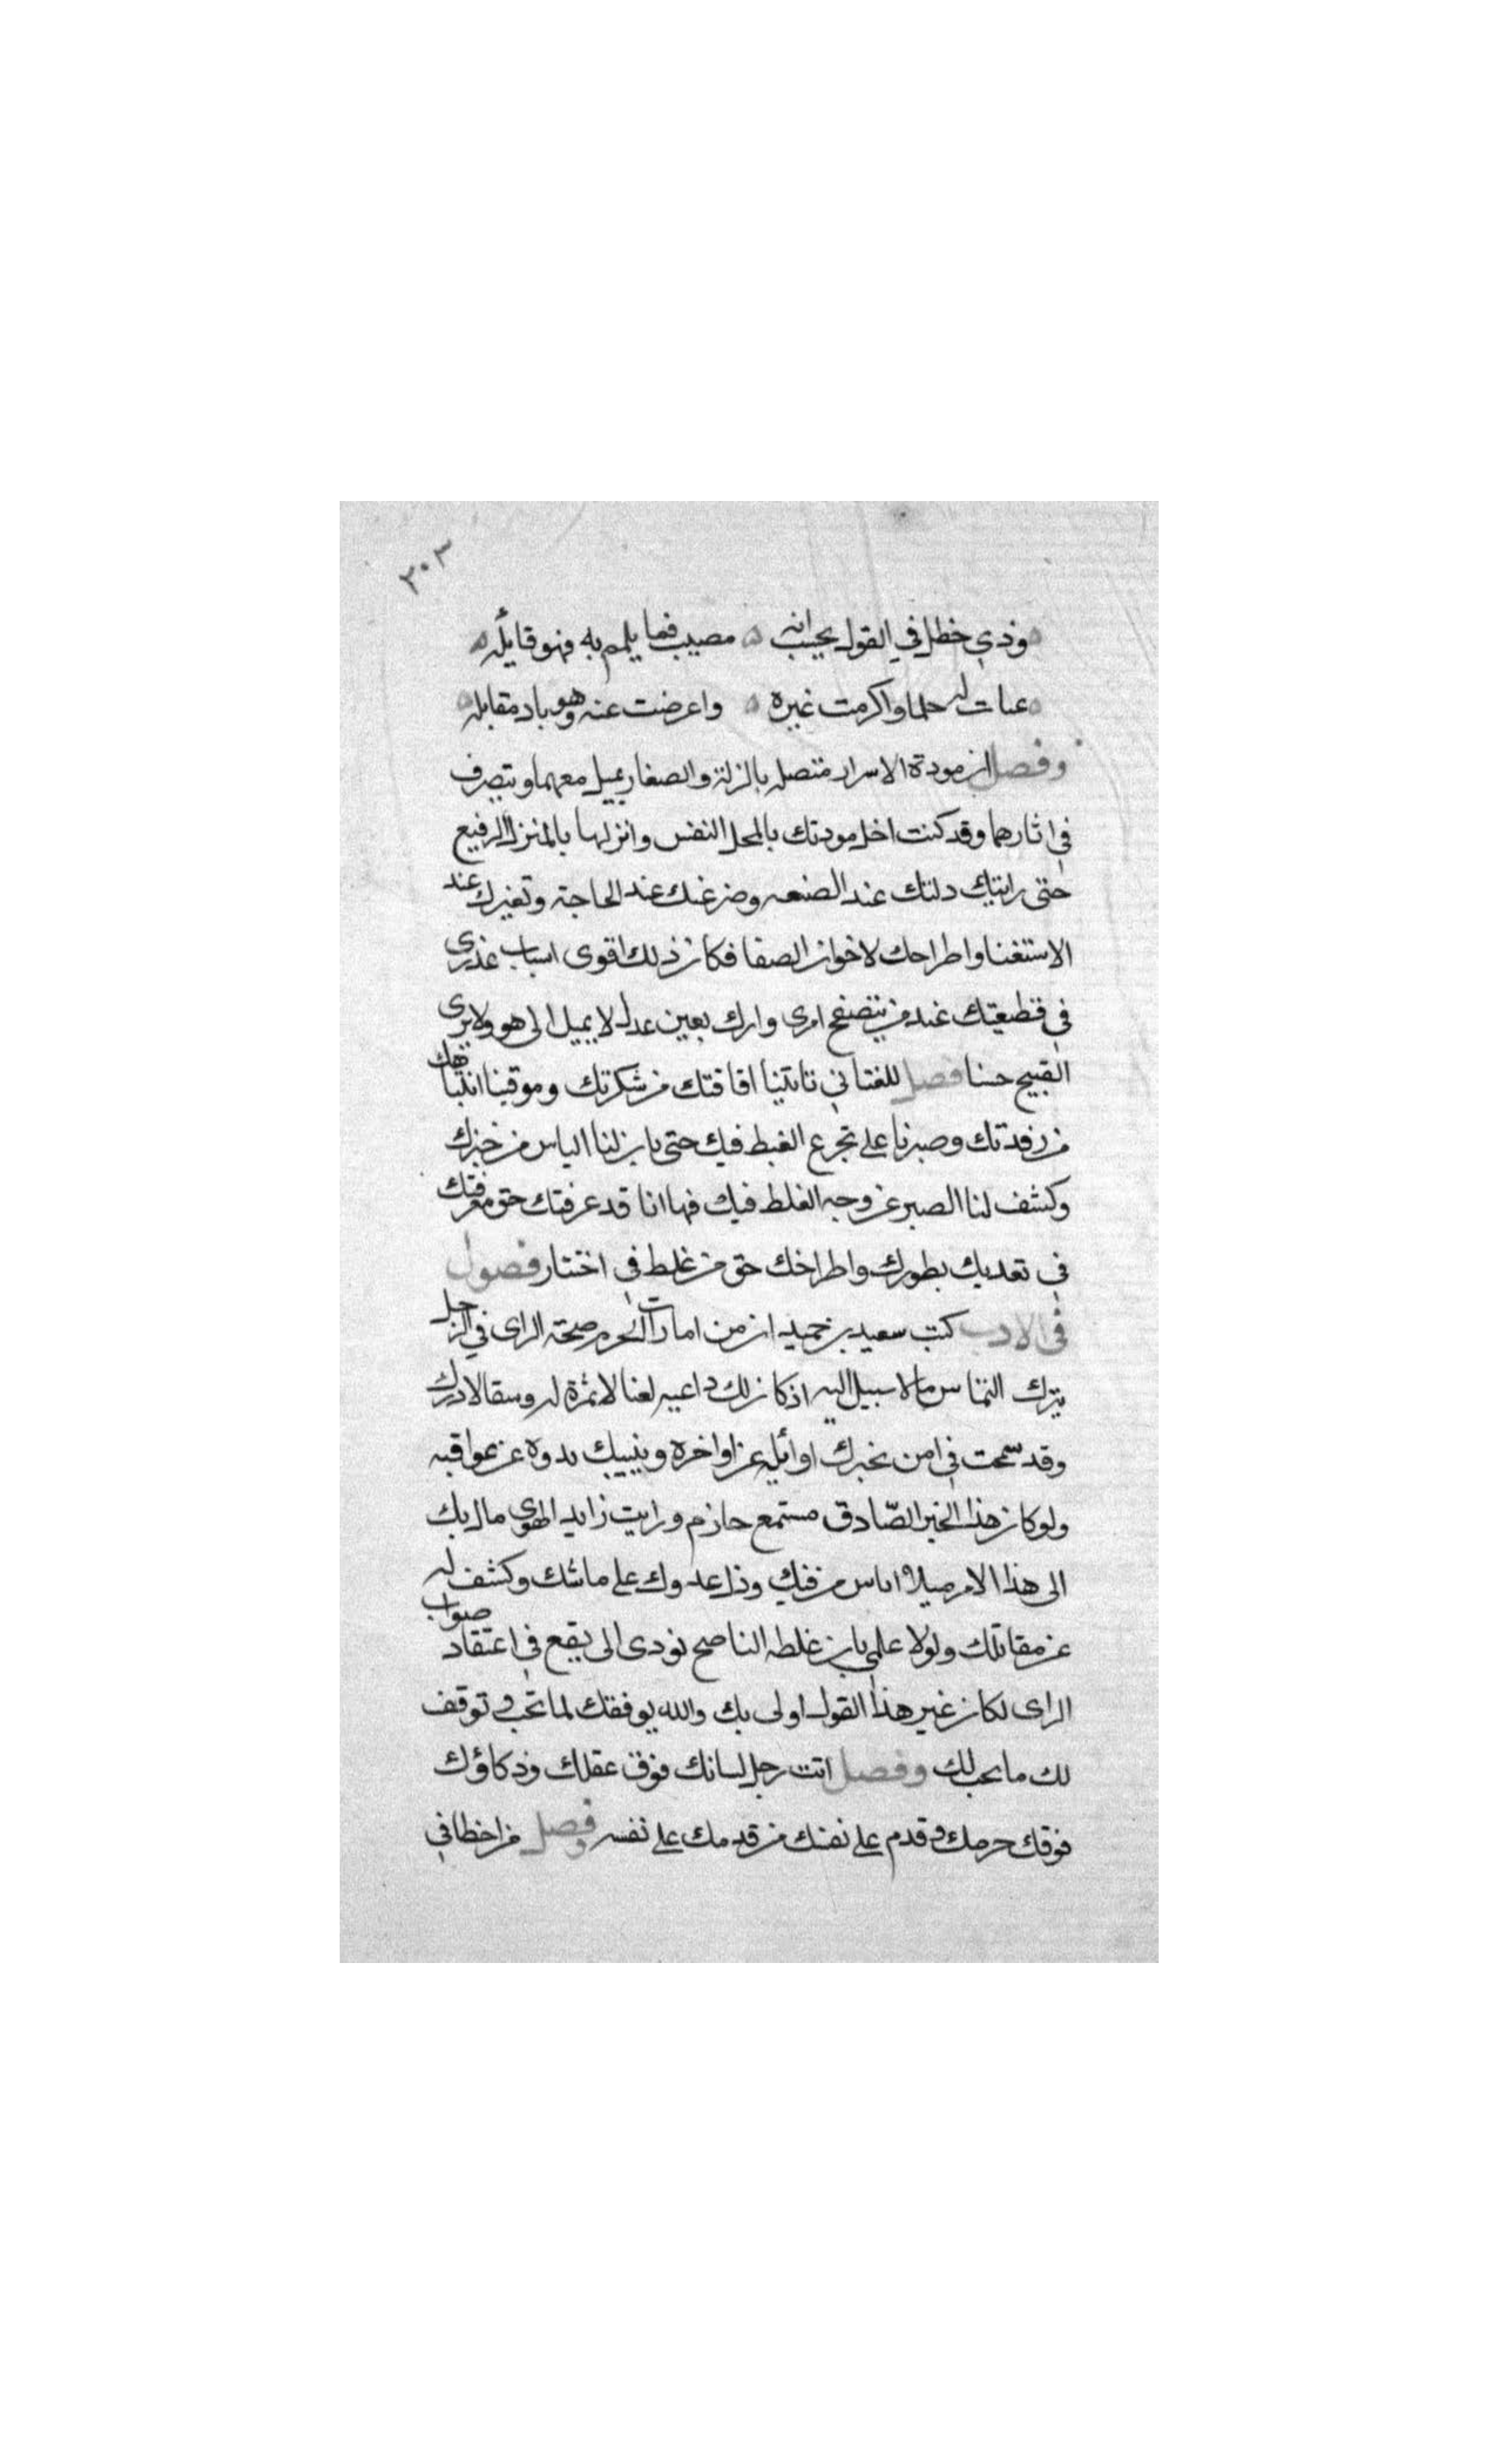 ٣٠٣
وذي خطل في القول يحسب انه ه مصيب فما يلمم به فهو قايله
عبات له حلما واكرمت غيره ه واعرضت عنه وهو باد مقابله
وفصل ان مودة الاسرار متصله بالزلة والصغار يميل معهما ويتصرف
في اثارهما وقد كنت اخل مودتك بالمحل النفس وانزلها بالمنزل الرفيع
حتى رايتك دلتك عند الصنعه وضرغنك عند الحاجة وتغيرك عند
الاستغنا واطراحك لاخوان الصفا فكان ذلك اقوى اسباب عذرى
في قطيعتك عند من يتصفح امرى وارك بعين عدل لا يميل الى هو ولا يرى
القبيح حسنا فصل للغتابي تانينا افاقتك من شكرتك وموقينا انتباهك
من رفدتك وصبرنا على تجرع الغيط فيك حتى بان لنا الياس من خبرك
وكشف لنا الصبر عن وجه الغلط فيك فها انا قد عرفتك حق معرفتك
في تعديك بطورك واطراخك حق من غلط في اختتار فصول
في الادب كتب سعيد بن حميد ان من امارات الحرم صحة الراى في الرجل
يترك التماس ما لا سبيل اليه اذ كان لك داعيه لعنا لا ثمرة له وسقالا درك
وقد سمحت في امن يخبرك اوائله عن اواخره وينبيك بدوه عن عواقبه
ولو كان هذا الخبر الصادق مستمع حازم ورايت زايد الهوى مال بك
الى هذا الامر ميلا اياس من فيك وذل عدوك على ماتتك وكشف له
عن مقاتلك ولولا علمي بان غلطه الناصح تودى الى يقع في اعتقاد صواب
الراى لكان غير هذا القول اولى بك والله يوفقك لما تحب وتوقف
لك ما يحب لك وفصل انت رجل لسانك فوق عقلك وذكاؤك
فوقك حرمك وقدم على نفسك من قدمك على نفسه وفصل من اخطا في